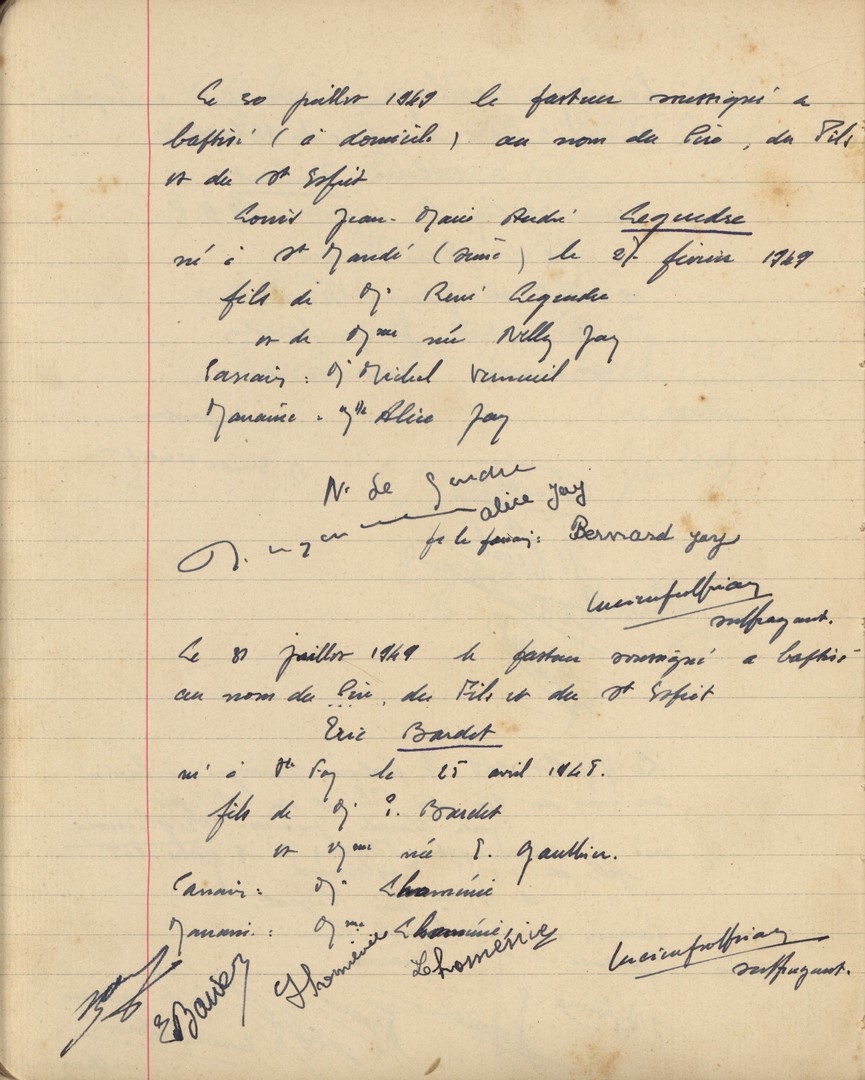 Le 30 juillet 1949 le pasteur soussigné a
baptisé (à domicile) au nom du Père, du Fils
et du St Esprit
Louis Jean-Marie André Legendre
né à St Mandé (Seine) le février 1949
fils de M. René Legendre
et de Mme née Nelly Jay
Parrain : M Michel Verneuil
Marraine : Mlle Alice Jay
N. Le Gendre
alice Jay
pr le parrain : Bernard Jay
suffragant.
Le 31 juillet 1949 le pasteur soussigné a baptisé
au nom du Père, du Fils et du St Esprit
Eric Bardet
né à Ste Foy le 25 avril
fils de M. Bardet
et Mme née Gauthier.
Parrain : M. Lhoménie
Marraine : Mme Lhoménie
Lhoménie
Lhoménie
suffragant.